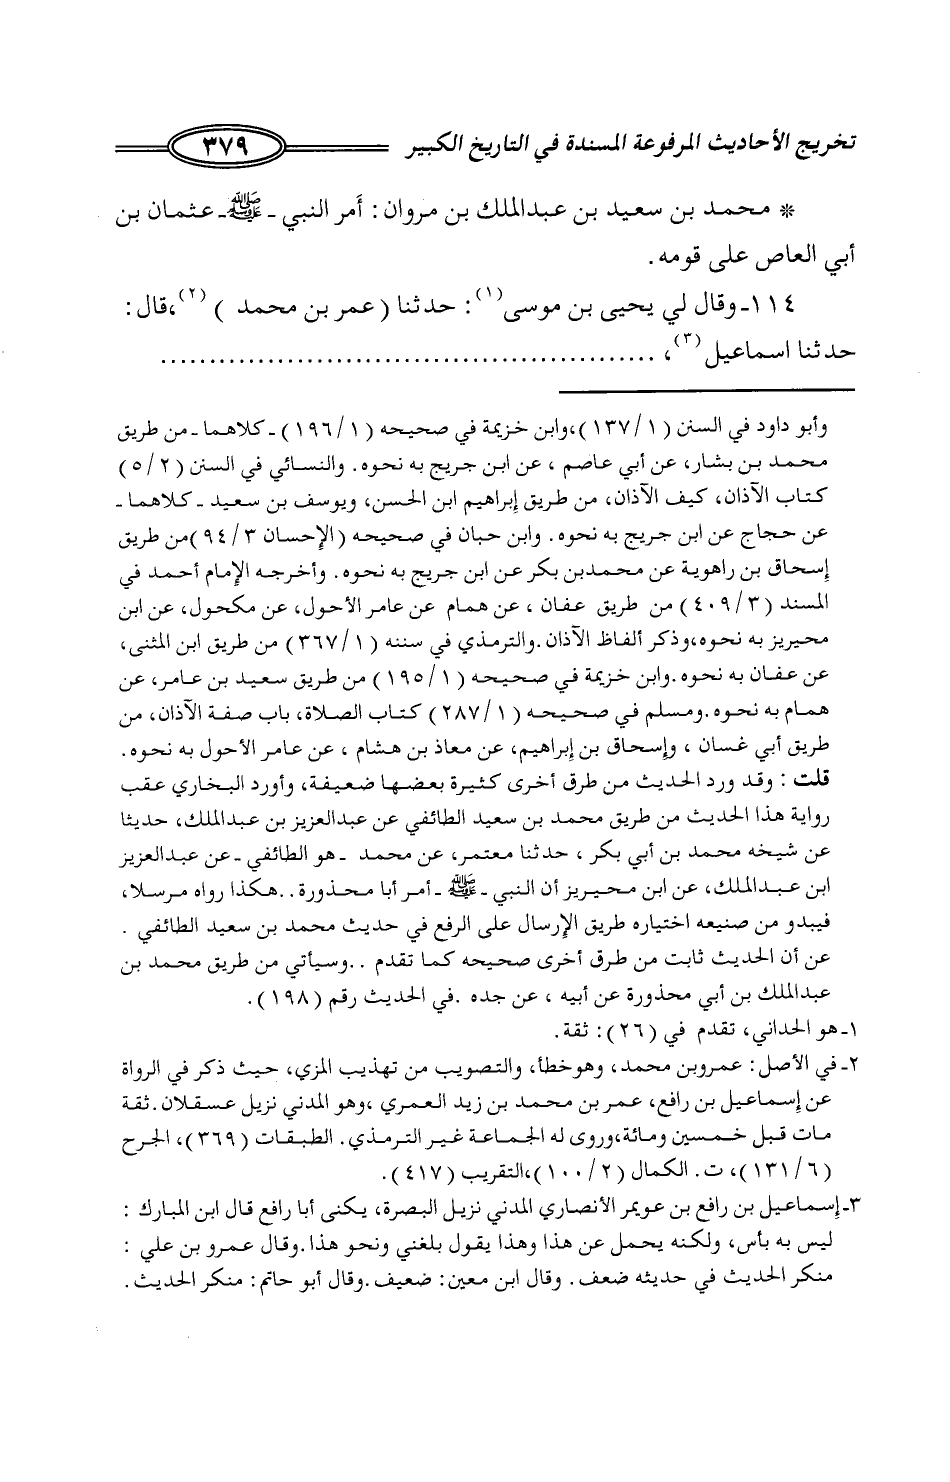 تخريج الأحاديث المرفوعة المسندة في التاريخ الكبير ٣٧٩
* محمد بن سعيد بن عبدالملك بن مروان: أمر النبي ـ ﷺ ـ عثمان بن
أبي العاص على قومه.
١١٤ـ وقال لي يحيى بن موسى(١): حدثنا (عمر بن محمد )(٢)،قال:
حدثنا اسماعيل(٣)، ..................................................
وأبو داود في السنن (١٣٧/١)،وابن خزيمة في صحيحه (١٩٦/١) ـ كلاهما ـ من طريق
محمد بن بشار، عن أبي عاصم ، عن ابن جريج به نحوه. والنسائي في السنن (٥/٢)
كتاب الآذان، كيف الآذان، من طريق إبراهيم ابن الحسن، ويوسف بن سعيد ـ كلاهما ـ
عن حجاج عن ابن جريج به نحوه. وابن حبان في صحيحه (الإحسان ٩٤/٣)من طريق
إسحاق بن راهوية عن محمدبن بكر عن ابن جريج به نحوه. وأخرجه الإمام أحمد في
المسند (٤٠٩/٣) من طريق عفان ، عن همام عن عامر الأحول، عن مكحول، عن ابن
محيريز به نحوه،وذكر ألفاظ الآذان.والترمذي في سننه (٣٦٧/١) من طريق ابن المثنى،
عن عفان به نحوه.وابن خزيمة في صحيحه (١٩٥/١) من طريق سعيد بن عامر، عن
همام به نحوه.ومسلم في صحيحه (٢٨٧/١) كتاب الصلاة، باب صفة الآذان، من
طريق أبي غسان ، وإسحاق بن إبراهيم، عن معاذ بن هشام ، عن عامر الأحول به نحوه.
قلت : وقد ورد الحديث من طرق أخرى كثيرة بعضها ضعيفة، وأورد البخاري عقب
رواية هذا الحديث من طريق محمد بن سعيد الطائفي عن عبدالعزيز بن عبدالملك، حديثا
عن شيخه محمد بن أبي بكر ، حدثنا معتمر، عن محمد ـ هو الطائفي ـ عن عبدالعزيز
ابن عبدالملك، عن ابن محيريز أن النبي ـ ﷺ ـ أمر أبا محذورة..هكذا رواه مرسلا،
فيبدو من صنيعه اختياره طريق الإرسال على الرفع في حديث محمد بن سعيد الطائفي .
عن أن الحديث ثابت من طرق أخرى صحيحه كما تقدم ..وسيأتي من طريق محمد بن
عبدالملك بن أبي محذورة عن أبيه ، عن جده .في الحديث رقم (١٩٨).
١ـ هو الحداني، تقدم في (٢٦): ثقة.
٢ـ في الأصل: عمروبن محمد، وهوخطأ، والتصويب من تهذيب المزي، حيث ذكر في الرواة
عن إسماعيل بن رافع، عمر بن محمد بن زيد العمري ،وهو المدني نزيل عسقلان.ثقة
مات قبل خمسين ومائة،وروى له الجماعة غير الترمذي. الطبقات (٣٦٩)، الجرح
(١٣١/٦)، ت. الكمال (١٠٠/٢)،التقريب (٤١٧).
٣ـ إسماعيل بن رافع بن عويمر الأنصاري المدني نزيل البصرة، يكنى أبا رافع قال ابن المبارك :
ليس به بأس، ولكنه يحمل عن هذا وهذا يقول بلغني ونحو هذا.وقال عمرو بن علي :
منكر الحديث في حديثه ضعف. وقال ابن معين: ضعيف.وقال أبو حاتم: منكر الحديث.